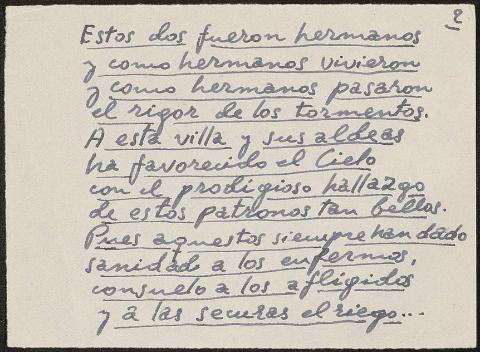 2
Estos dos fueron hermanos
y como hermanos vivieron
y como hermanos pasaron
el rigor de los tormentos.
A esta villa y sus aldeas
ha favorecido el Cielo
con el prodigioso hallazgo
de estos patronos tan bellos.
Pues aquestos siempre han dado
sanidad a los enfermos,
consuelo a los afligidos
y a las securas el riego...